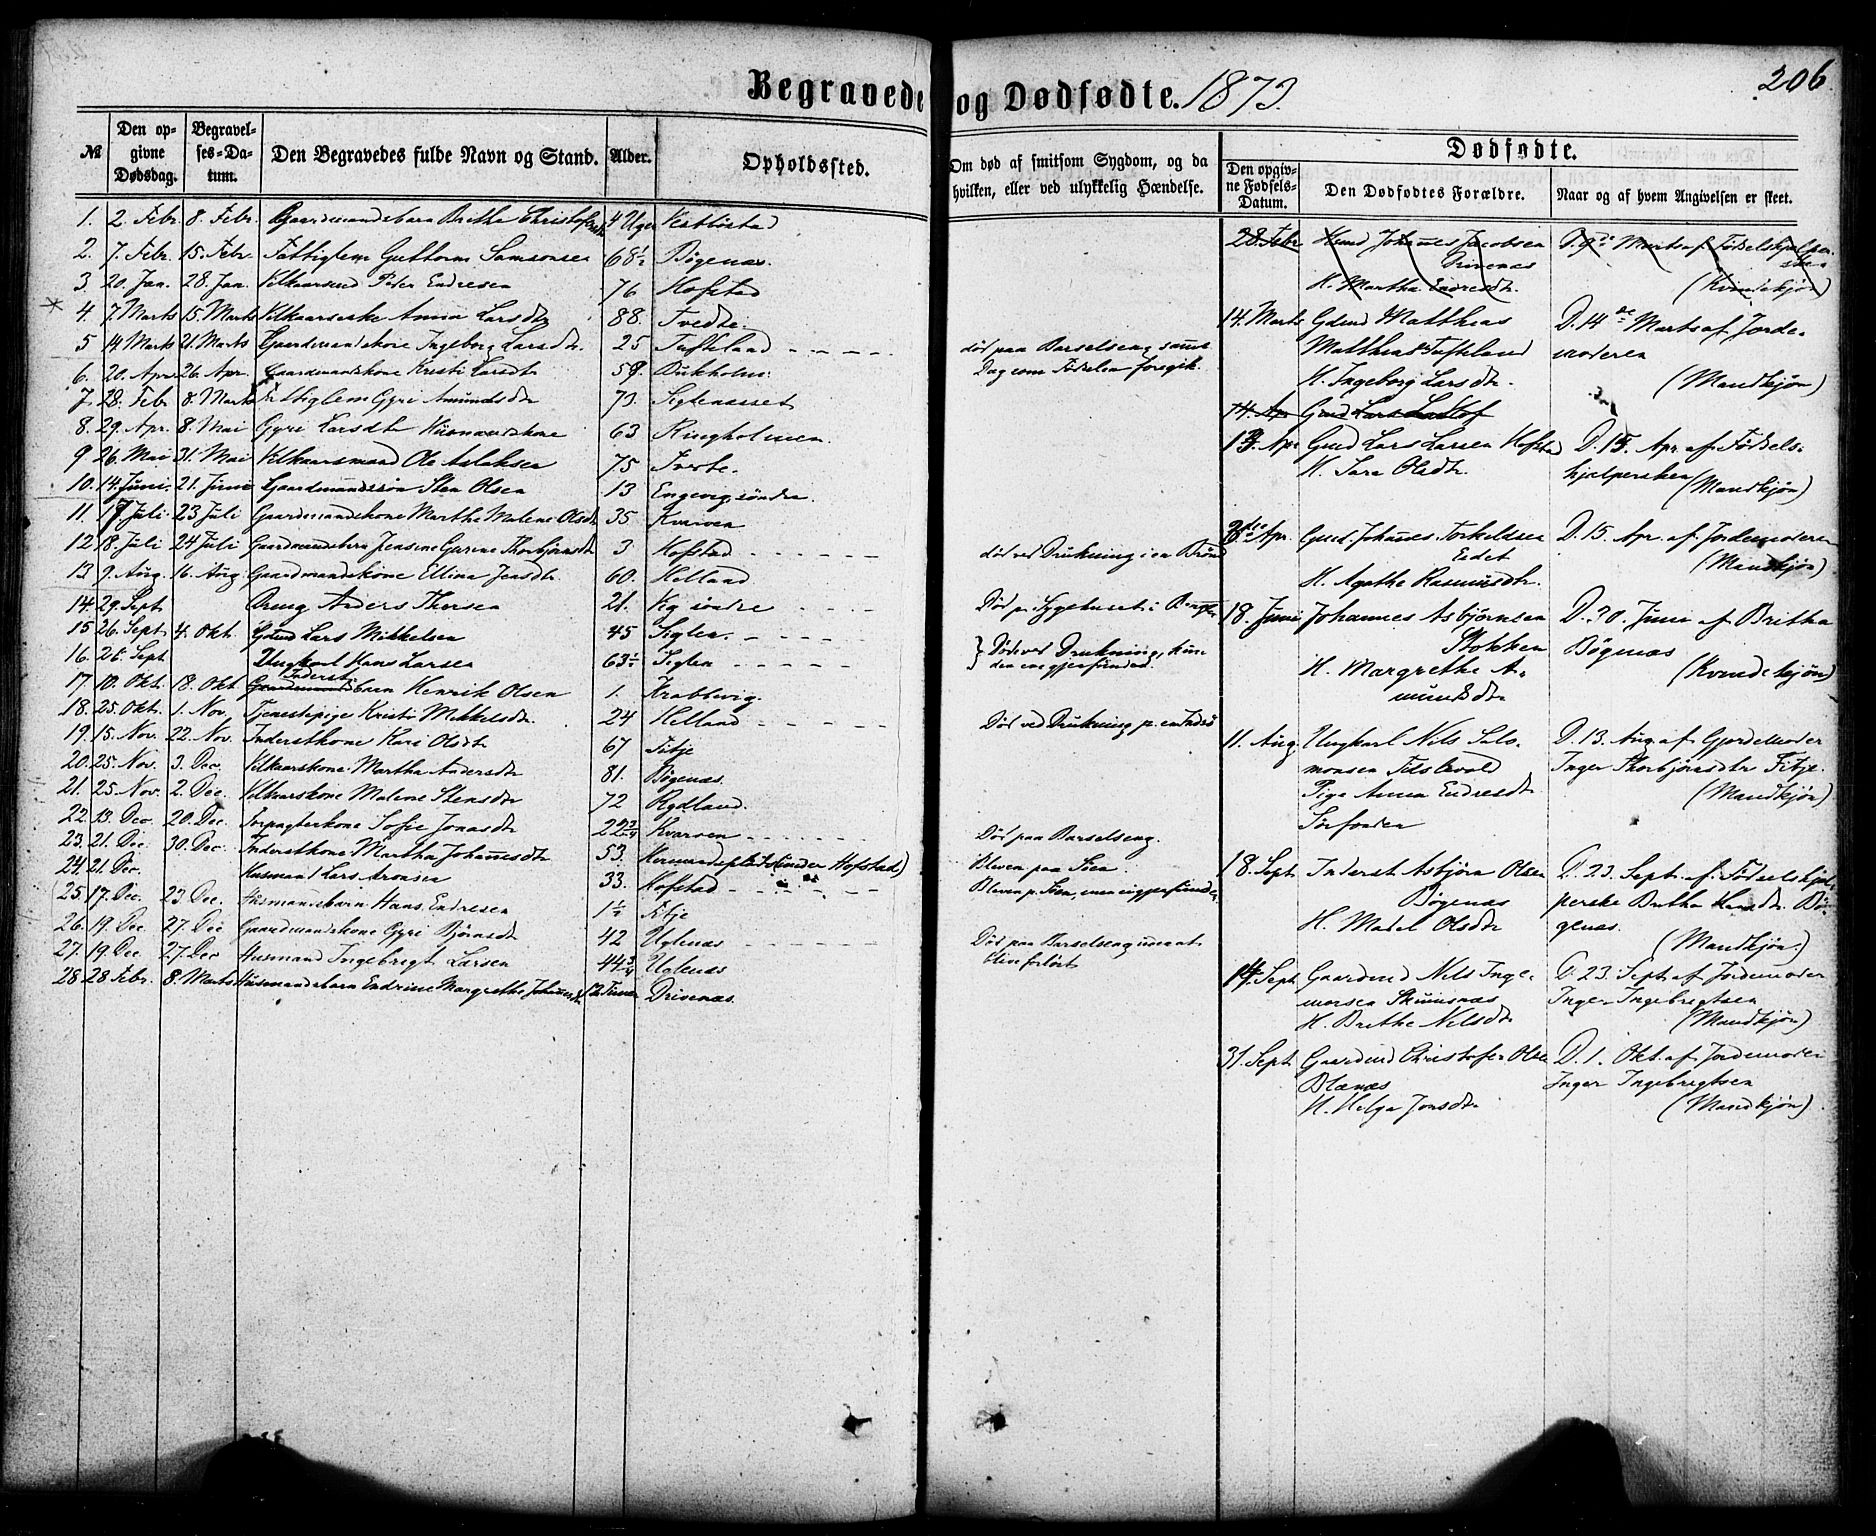 206
Begravede og Dødfødte. 1873.
№
Den opgivne Dødsdag.
Begravelses-Datum.
Den Begravedes fulde Navn og Stand.
Alder.
Opholdssted.
Om død af smitsom Sygdom, og da hvilken, eller ved ulykkelig Hændelse.
Dødfødte.
Den opgivne Fødsels-Datum.
Den Dødfødtes Forældre.
Naar og af hvem Angivelsen er skeet.
1. 2. Febr. 8. Febr. Gaardmandsbarn Brithe 4 Uger
2. 7. Febr. 15. Febr. Fattiglem Guttorm Samsonsen 68½ Bøgenæs.
3. 20. Jan. 28. Jan. Peder Endresen 76 Hofstad
4. 7. Marts 15. Marts Anna Larsdtr 88. Tvedte.
5 14. Marts 21. Marts Gaardmandskone Ingeborg Larsdtr. 25 Tufteland død paa Barselseng samme Dag som Fødselen foregik.
6. 20. Apr. 26. Apr. Gaardmandskone Kristi Larsdtr 59. Bukholm.
7. 28. Febr 8. Marts Fattiglem Gyri Amundsdtr 73.
8. 29. Apr. 8. Mai Gyri Larsdtr Husmandskone 63 Ringholmen
9 26. Mai 31. Mai Ole Aslaksen 75
10. 14. Juni. 21. Juni Gaardmandssøn Sten Olsen 13 Engevig søndre.
11. 17. Juli 23 Juli Gaardmandskone Marthe Malene Olsdtr 35 Kvarven
12 18. Juli 24 Juli Gaardmandsbarn Jensine Gurine Thorbjørnsdtr 3 Hofstad død ved Drukning i en Brønd
13 9. Aug. 16. Aug. Gaardmandskone Ellina Jensdtr. 60. Helland
14. 29. Sept Anders Thorsen 21. søndre Død p. Sygehuset i Bergen
15 26. Sept 4. Okt. Gmd Lars Mikkelsen 45 Siglen.
16. 26. Sept Ungkarl Hans Larsen 63½ Siglen } Døde ved Drukning, kun den ene gjenfunden.
17. 10. Okt. 18. Okt Inderst barn Henrik Olsen 1. Krabbevig.
18. 25. Okt. 1. Nov. Tjenestepige Kristi Mikkelsdtr. 24 Helland Død ved Drukning
19. 15. Nov. 22. Nov. Inderstkone Kari Olsdtr 67 Fitje
20. 25. Nov. 3. Dec. Kaarkone Martha Andersdtr 81. Bøgenæs.
21. 25. Nov. 2. Dec. Kaarkone Malene Stensdtr 72 Rydland.
22. 13. Dec. 20. Dec. Forpagterkone Sofie Jonasdtr 22¾ Kvarven Død paa Barselseng.
23. 21. Dec 30. Dec. Inderstkone Martha Johannesdtr 53. (under Hofstad) Bleven paa Søen
24. 21. Dec. Husmand Lars Aronsen 33. Hofstad Bleven p. Søen, men ei gjenfunden.
25. 17. Dec. 23. Dec. Husmandsbarn Hans Endresen 1½ Fitje
26. 19. Dec 27. Dec Gaardmandskone Gyri Bjørnsdtr 42 Uglenæs Død paa Barselseng uden at blive forløst
27. 19. Dec 27. Dec Husmand Ingebregt Larsen 44¾ Uglenæs
28. 28 Febr. 8. Marts Husmandsbarn Endrine Margrethe Johannesdtr 12 Timer Drivenæs.
28. Febr Husmd Johannes Jacobsen Drivenæs H. Martha Endresdtr. D. 9de Marts af Fødselshjelpersken (Kvindekjøn)
14. Marts Gdmd Matthias Matthias. Tufteland H. Ingeborg Larsdtr. D. 14de Marts af Jordemoderen (Mandkjøn)
14. Apr Gmd Lars
13. Apr Gmd Lars Larsen Hofstad H. Sara Olsdtr. D. 15. Apr. af Fødselshjelpersken (Mandkjøn)
Apr. Gmd. Johannes Torkeldsen Eidet H. Agathe Rasmusdtr. D. 15. Apr. af Jordemoderen (Mandkjøn)
18 Juni Johannes Asbjørnsen Stokken H. Margrethe Amundsdtr D. 30. Juni af Britha Bøgenæs (Kvindekjøn)
11. Aug. Ungkarl Nils Salomonsen Pige Anna Endresdtr D. 13. Aug. af Gjordemoder Inger Thorbjørnsdtr Fitje. (Mandkjøn)
18. Sept. Inderst Asbjørn Olsen Bøgenæs H. Madel Olsdtr D. 23. Sept. af Fødselshjelperske Britha Hansdtr. Bøgenæs. (Mandkjøn.)
14. Sept. Gaardmd Nils Ingemorsen H. Brithe Nilsdtr D. 23. Sept af Jordemoder Inger Ingebregtsen (Mandkjøn)
31. Sept. Gaardmd Christofer Olsen Blænæs H. Helga Jonsdtr D. 1. Okt. af Jordemoder Inger Ingebregtsen (Mandkjøn)